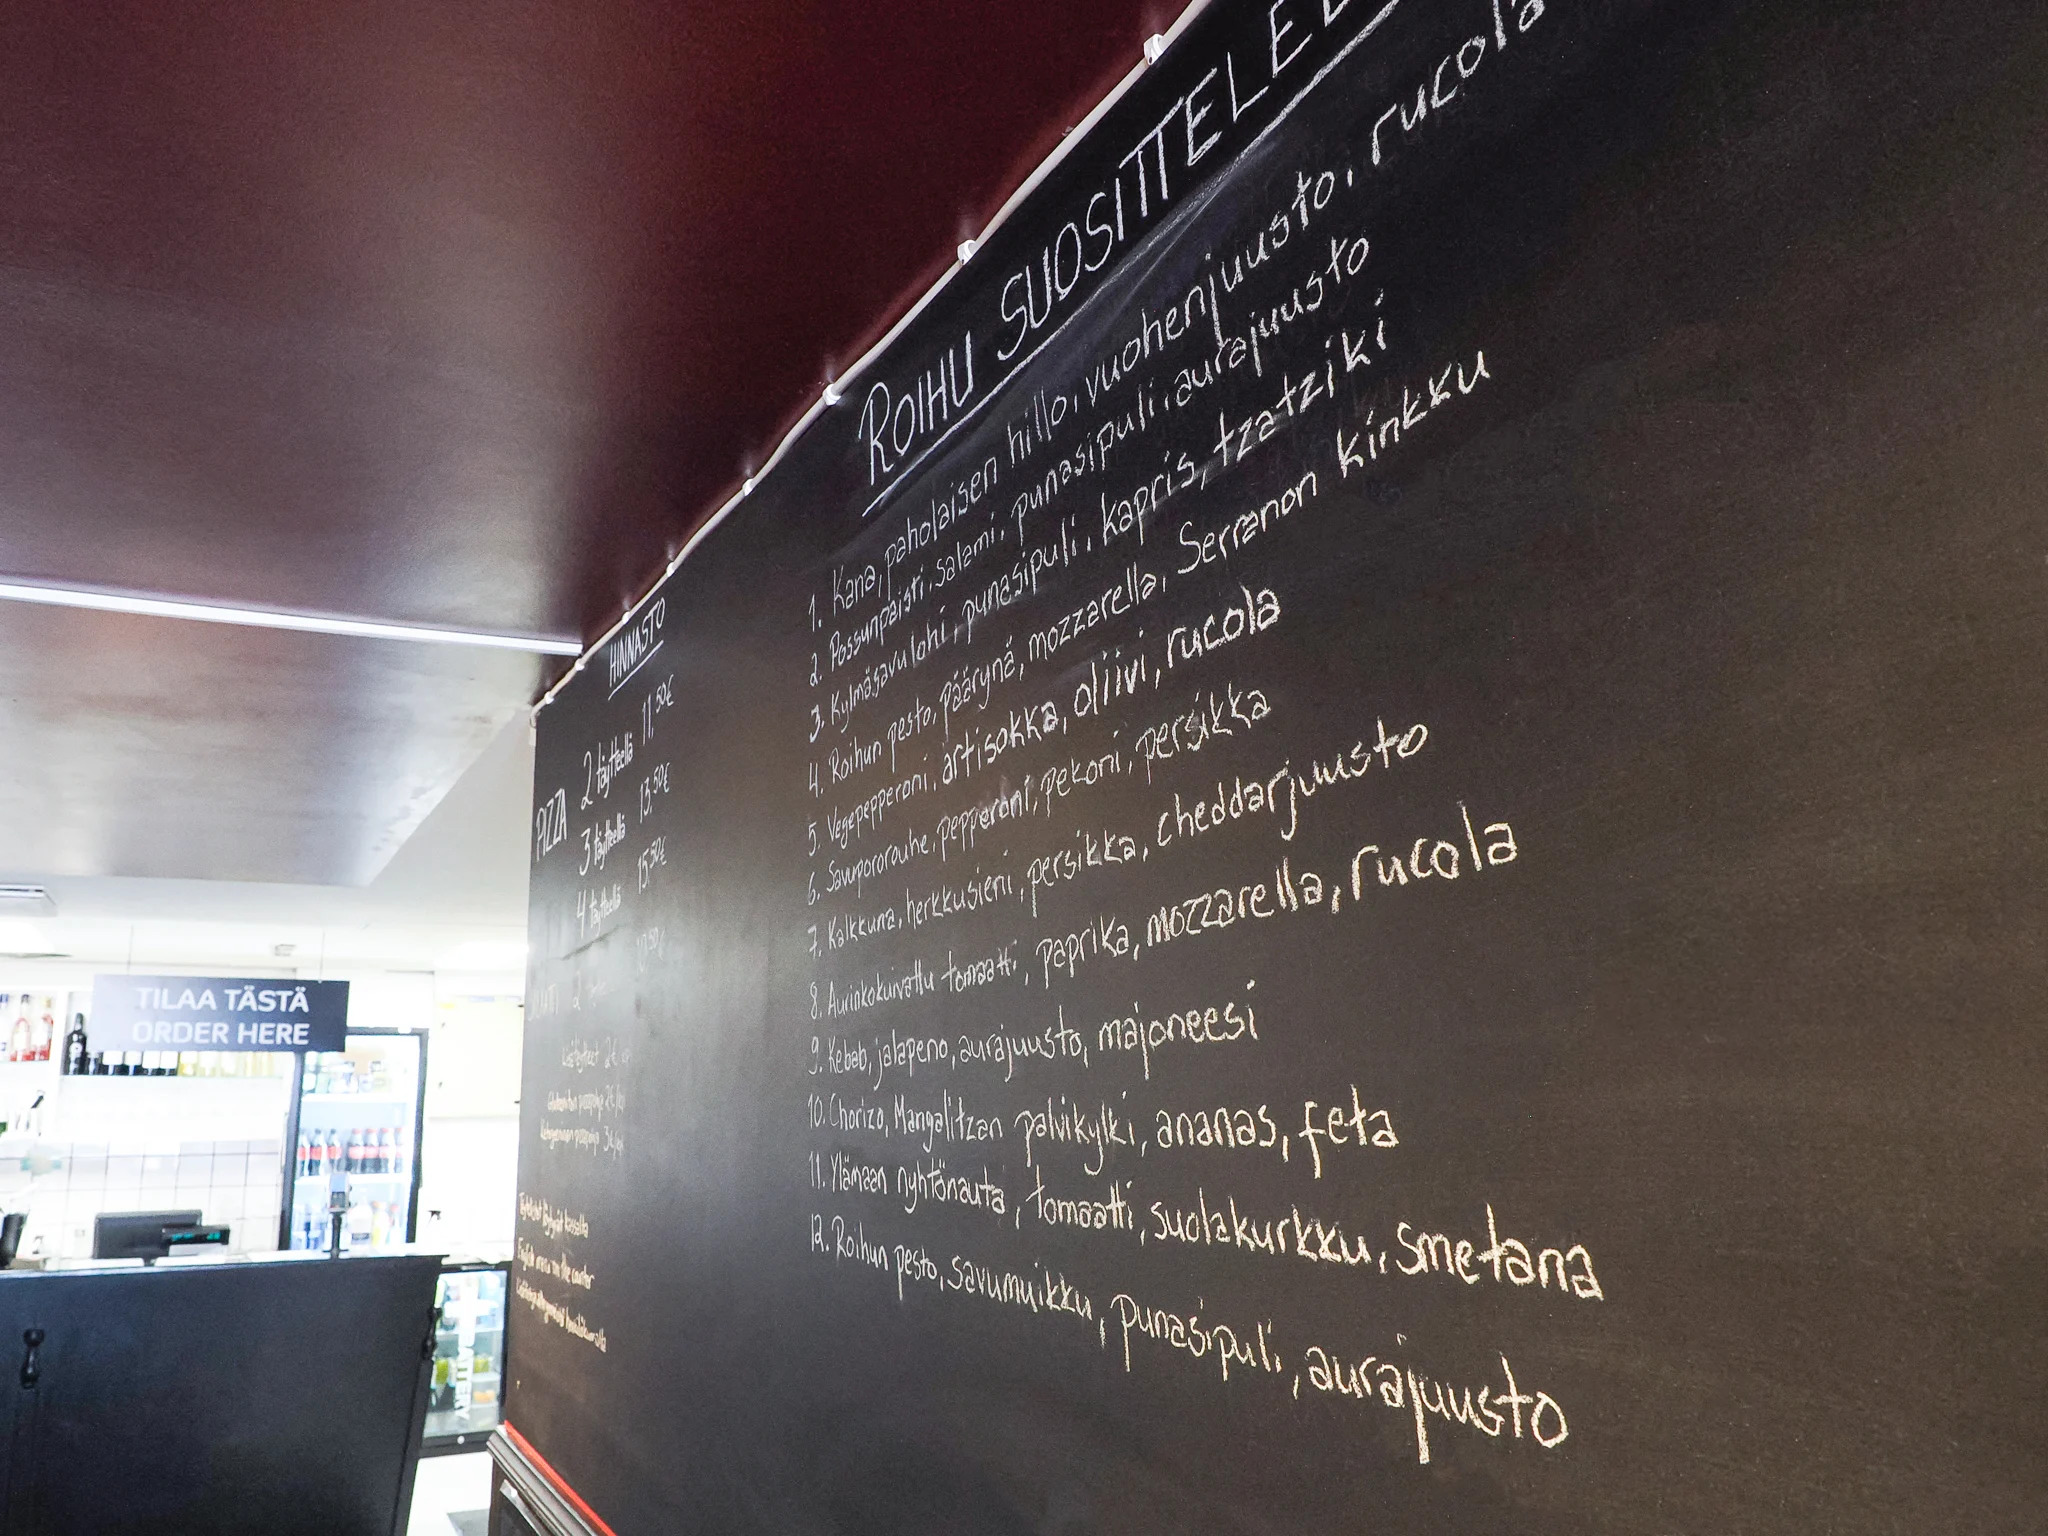 ROIHU SUOSITTELEE
1. Kana, paholaisen hillo, vuohenjuusto, rucola
2. Possunpaisti, salami, punasipuli, aurajuusto
3. Kylmäsavulohi, punasipuli, kapris, tzatziki
4. Roihun pesto, päärynä, mozzarella, Serranon kinkku
5. Vegepepperoni, artisokka, oliivi, rucola
6. Savupororouhe, pepperoni, pekoni, persikka
7. Kalkkuna, herkkusieni, persikka, cheddarjuusto
8. Aurinkokuivattu tomaatti, paprika, mozzarella, rucola
9. Kebab, jalapeno, aurajuusto, majoneesi
10. Chorizo, Mangalitzan palvikylki, ananas, feta
11. Ylämaan nyhtönauta, tomaatti, suolakurkku, smetana
12. Roihun pesto, savumuikku, punasipuli, aurajuusto
HINNASTO
PIZZA 2 täytteellä 11,50€
3 täytteellä 13,50€
4 täytteellä 15,50€
Lisätäytteet 2€
English menu on the counter
TILAA TÄSTÄ
ORDER HERE